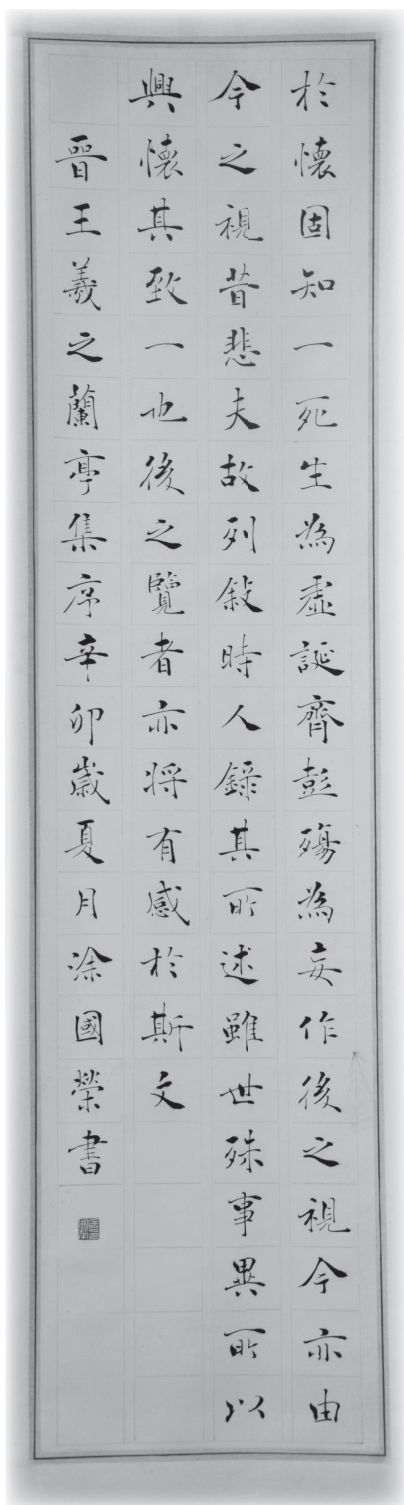 於懷固知一死生為虛誕齊彭殤為妄作後之視今亦由
今之視昔悲夫故列敘時人錄其所述雖世殊事異所以
興懷其致一也後之覽者亦将有感於斯文
晉王羲之蘭亭集序辛卯歲夏月涂國榮書